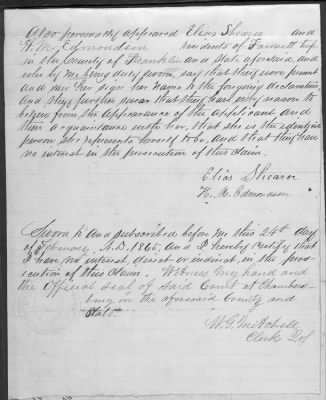 Also personally appeared Elias Shearer and
H. M. Edmondson residents of Fannett Twp
in the County of Franklin and State aforesaid, and
who by me being duly sworn, say that they were present
and saw her sign her name to the foregoing declaration
and they further swear that they have every reason to
believe from the appearance of the applicant and
their acquaintance with her, that she is the identical
person she represents herself to be, and that they have
no interest in the prosecution of this claim.
Elias Shearer
H. M. Edmondson
Sworn to and subscribed before me this 24th day
of February A.D. 1865, and I hereby certify that
I have no interest, direct or indirect, in the pros-
ecution of this claim. Witness my hand and
the Official seal of said Court at Chambers-
burg in the aforesaid County and
State.
W. G. Mitchell
Clerk